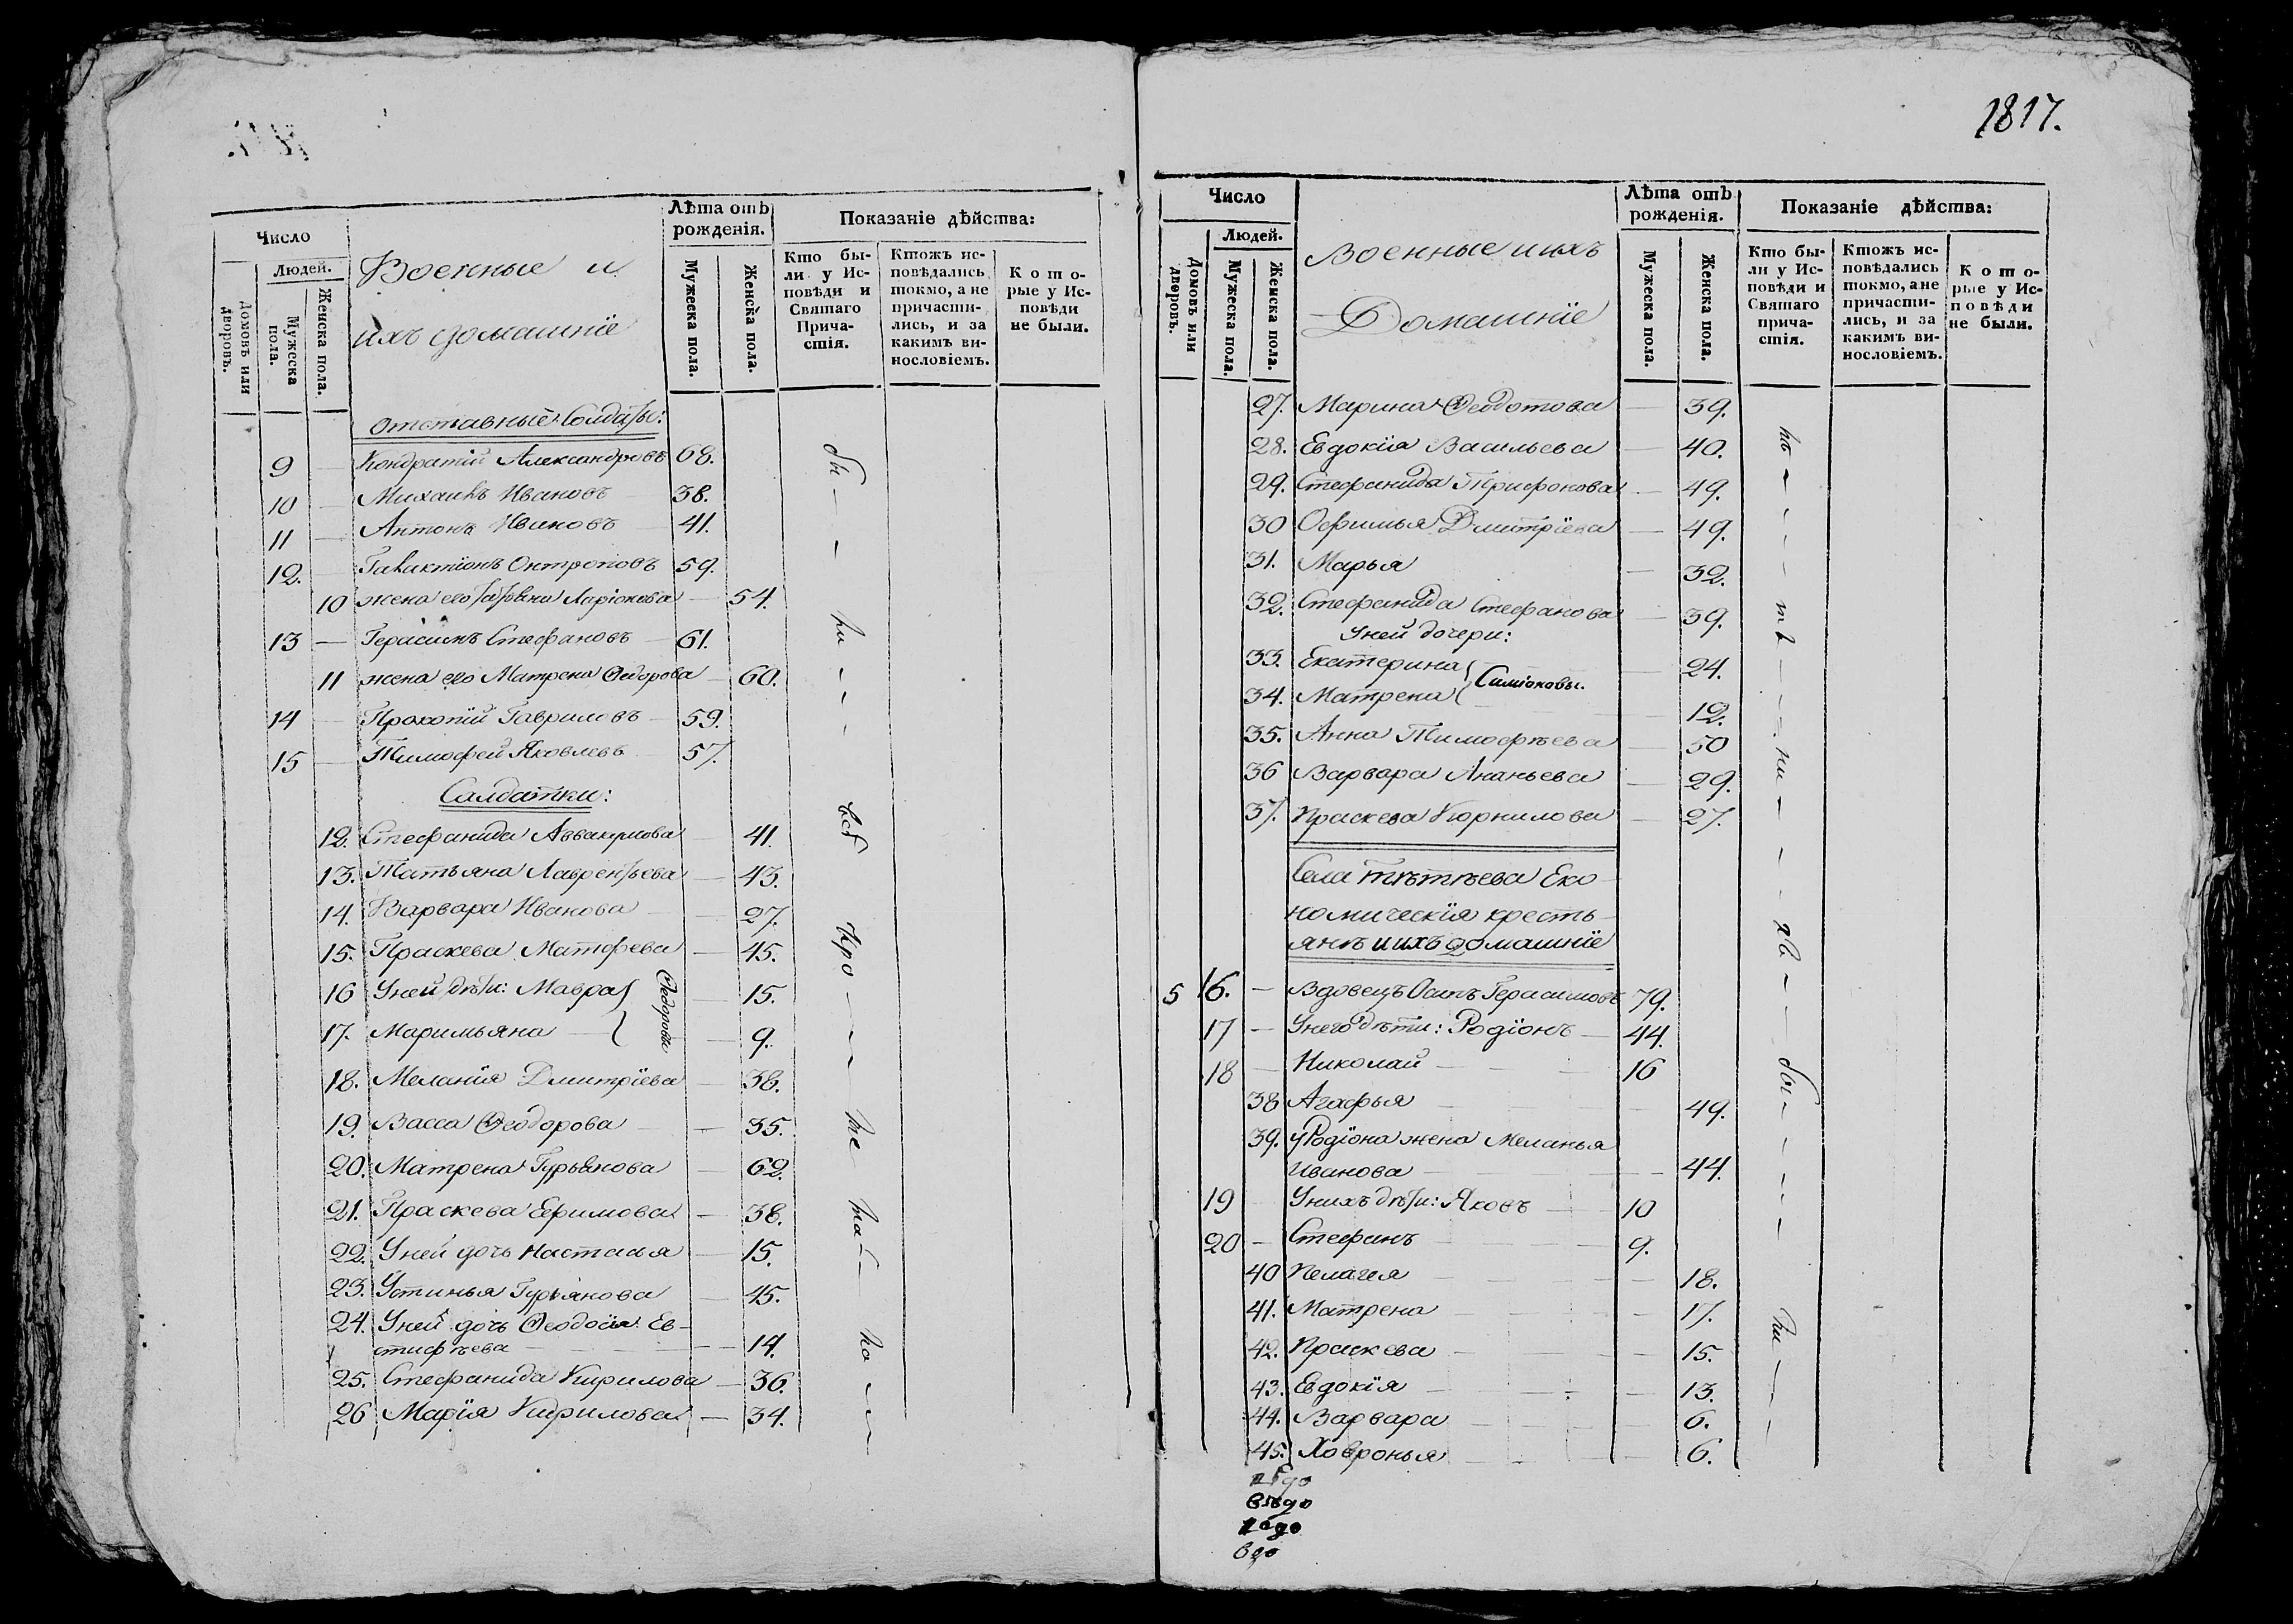 Число
Людей.
Домовъ или дворовъ.
Мужеска пола.
Женска пола.
Военные и
ихъ домашніе
Лѣта отъ рожденія.
Мужеска пола.
Женска пола.
Показаніе дѣйства:
Кто бы-
ли у Ис-
повѣди и
Святаго
Прича-
стія.
Ктожъ ис-
повѣдались
токмо, а не
причасти-
лись, и за
какимъ ви-
нословіемъ.
Кото-
рые у Ис-
повѣди
не были.
отставные Солдаты:
9 — Кондратій Александровъ 68.
10 — Михаилъ Ивановъ 38.
11 — Антонъ Ивановъ — 41.
12. — Галактіонъ Онтроповъ 59.
10 жена его Татьяна Ларіонова — 54.
13 — Герасимъ Стефановъ — 61.
11 жена его Матрена Ѳедорова — 60.
14 — Прокопій Гавриловъ — 59.
15 — Тимофей Яковлевъ 57.
Салдатки:
12. Стефанида Аввакумова — 41.
13. Татьяна Лаврентьева — 43.
14. Варвара Иванова — 27.
15. Праскева Матфеева — 45.
16 Уней дѣти: Мавра — 15.
17. Маримьяна — 9.
Ѳедоровы
18. Меланія Дмитріева — 38.
19. Васса Ѳеодорова — 35.
20. Матрена Гурьянова — 62.
21. Праскева Ефимова — 38.
22. Уней дочь Настасья — 15.
23. Устинья Гурьянова — 45.
24. Уней дочь Ѳеодосія Ев-
стифѣева — 14.
25. Стефанида Кирилова — 36.
26 Марія Кирилова — 34.
бы — — ли — — — всѣ кро — — ме — ма — ло —
1817.
Число
Людей.
Домовъ или дворовъ.
Мужеска пола.
Женска пола.
Военные и ихъ
Домашніе
Лѣта отъ рожденія.
Мужеска пола.
Женска пола.
Показаніе дѣйства:
Кто бы-
ли у Ис-
повѣди и
Святаго
прича-
стія.
Ктожъ ис-
повѣдались
токмо, а не
причасти-
лись, и за
какимъ ви-
нословіемъ.
Кото-
рые у Ис-
повѣди
не были.
27. Марина Ѳеодотова — 39.
28. Евдокія Васильева — 40.
29. Стефанида Трифонова — 49.
30 Офимья Дмитріева — 49.
31. Марья — 32.
32. Стефанида Стефанова — 39.
Уней дочери:
33. Екатерина — 24.
34. Матрена — 12.
Симіоновы.
35. Анна Тимофѣева — 50
36 Варвара Ананьева — 29.
37. Праскева Корнилова — 27.
Села Тѣтѣева Еко
номическія кресть
янѣ и ихъ домашніе
5 16. — Вдовецъ Осипъ Герасимовъ 79.
17 — Унего дѣти: Родіонъ — 44.
18 — Николай — 16
38 Агафья — 49.
39. у Родіона жена Меланья
Иванова — 44.
19 Унихъ дѣти: Яковъ — 10
20 — Стефанъ — 9.
40 Пелагея — 18.
41. Матрена — 17.
42. Праскева — 15.
43. Евдокія — 13.
44. Варвара — 6.
45. Ховронья — 6.